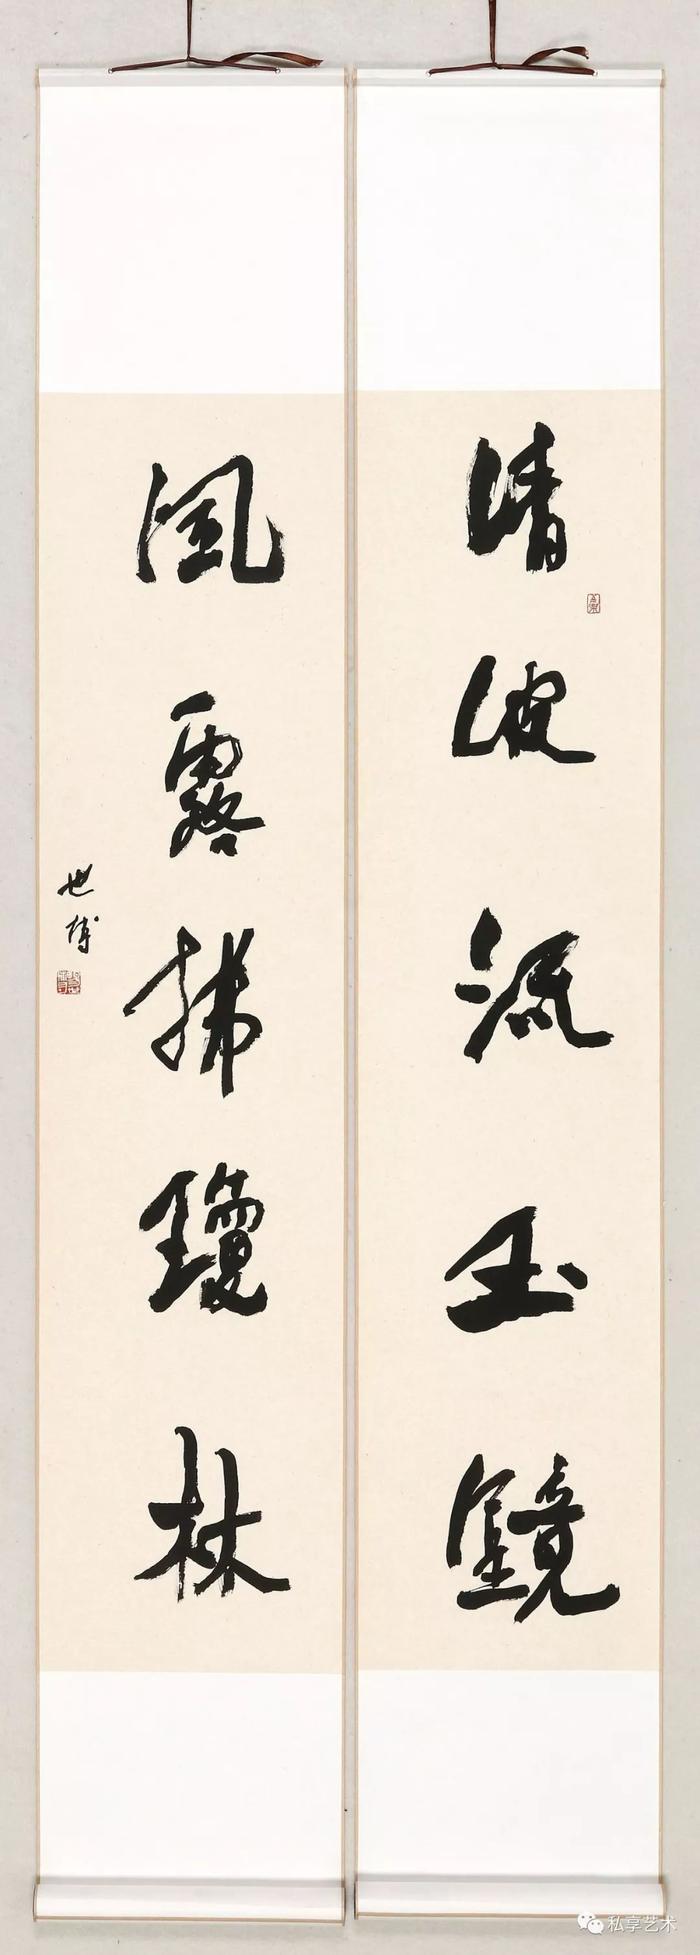 晴波流玉鏡
風露拂瓊林
世博
私享艺术